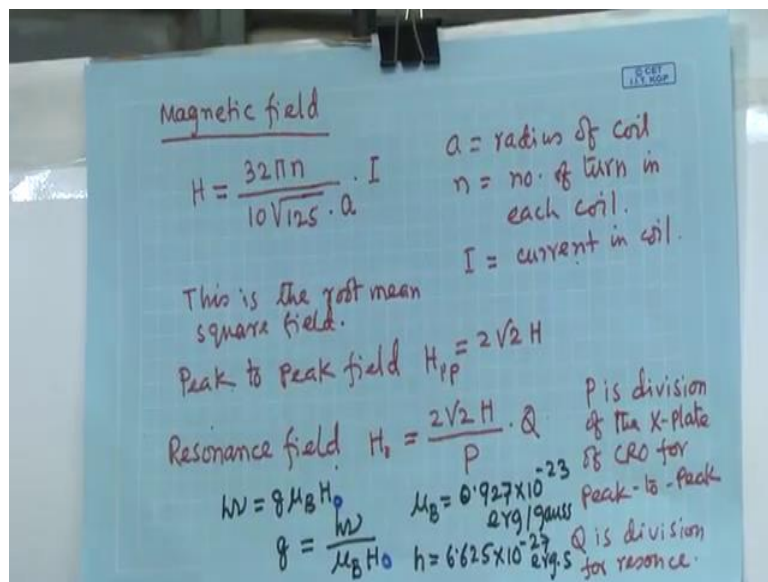 D CET
I.I.T. KGP
Magnetic field
H = 32πn / 10√125 . a . I
a = radius of coil
n = no. of turn in
each coil.
I = current in coil.
This is the root mean
square field.
Peak to peak field Hpp = 2√2 H
Resonance field H₀ = 2√2 H / P . Q
P is division
of the X-plate
of CRO for
Peak-to-Peak
Q is division
for resonce.
hν = gμ_B H₀
g = hν / μ_B H₀
μ_B = 0.927×10⁻²³
erg/gauss
h = 6.625×10⁻²⁷ erg.s